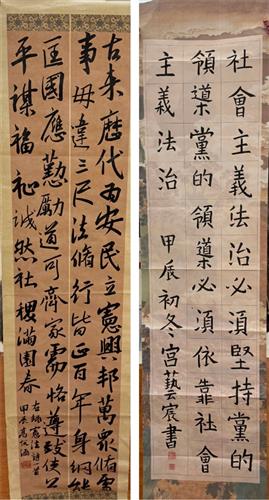 古来歷代為安民立憲興邦萬眾
事毋違三尺法脩行皆正百年身綱
匡國應懃勵道可齊家需恪遵致使公
平謀福祉誠然社稷滿園春
右録憲法詩一首
甲辰
社會主義法治必須堅持黨的
領導黨的領導必須依靠社會
主義法治 甲辰初冬宮藝宸書